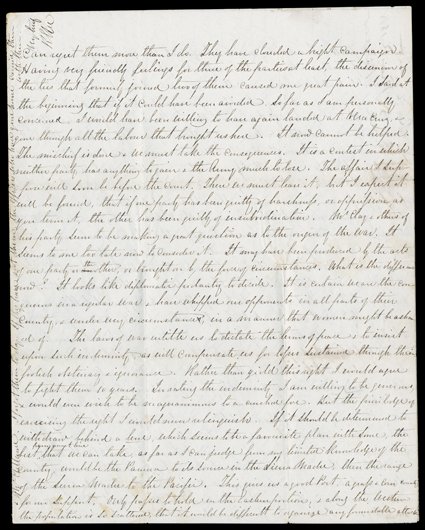 can regret them more than I do. They have clouded a bright campaign.
Having very friendly feelings for three of the parties at least, the dissension of
the ties that formerly bound two of them caused me great pain. I said at
the beginning that if it could have been avoided so far as I am personally
concerned I would have been willing to have again landed at Vera Cruz, &
gone through all the labour that brought us here. It now cannot be helped.
The mischief is done & we must take the consequences. It is a contest in which
neither party has anything to gain & the Army much to lose. The affair I sup
pose will soon be before the Court. There we must leave it, but I expect it
will be found, that if one party has been guilty of harshness, or oppression as
you term it, the other has been guilty of insubordination. Mr Clay & others of
his party seem to be making a great question as to the origin of the war. It
seems to me too late now to consider it. It may have been produced by the acts
of one party or the other, or brought on by the force of circumstances. What is the differe
nce. It looks like diplomatic pedantry to decide. It is certain we are the con
querors in a regular war, have whipped our opponents in all parts of their
country, & under every circumstance, in a manner that women might be asham
ed of. The laws of war entitle us to dictate the terms of peace & to insist
upon such indemnity as will compensate us for losses sustained through their
foolish obstinacy & ignorance. Rather than yield this right I would agree
to fight them 10 years. In taking the indemnity I am willing to be generous
& would even wish to be so magnanimous to a crushed foe. But the privilege of
exercising the right I would never relinquish. If it should be determined to
withdraw behind a line, which seems to be a favourite plan with some, the
best, that we can take, as far as I can judge from my limited knowledge of the
country, would be the Panuco to its source in the Sierra Madre, then the range
of the Sierra Madre to the Pacific. This gives us a good Port, a
for our support, Only passes to hold in the Eastern portion, & along the Western
the population is so scattered, that it would be difficult to organize any formidable attack